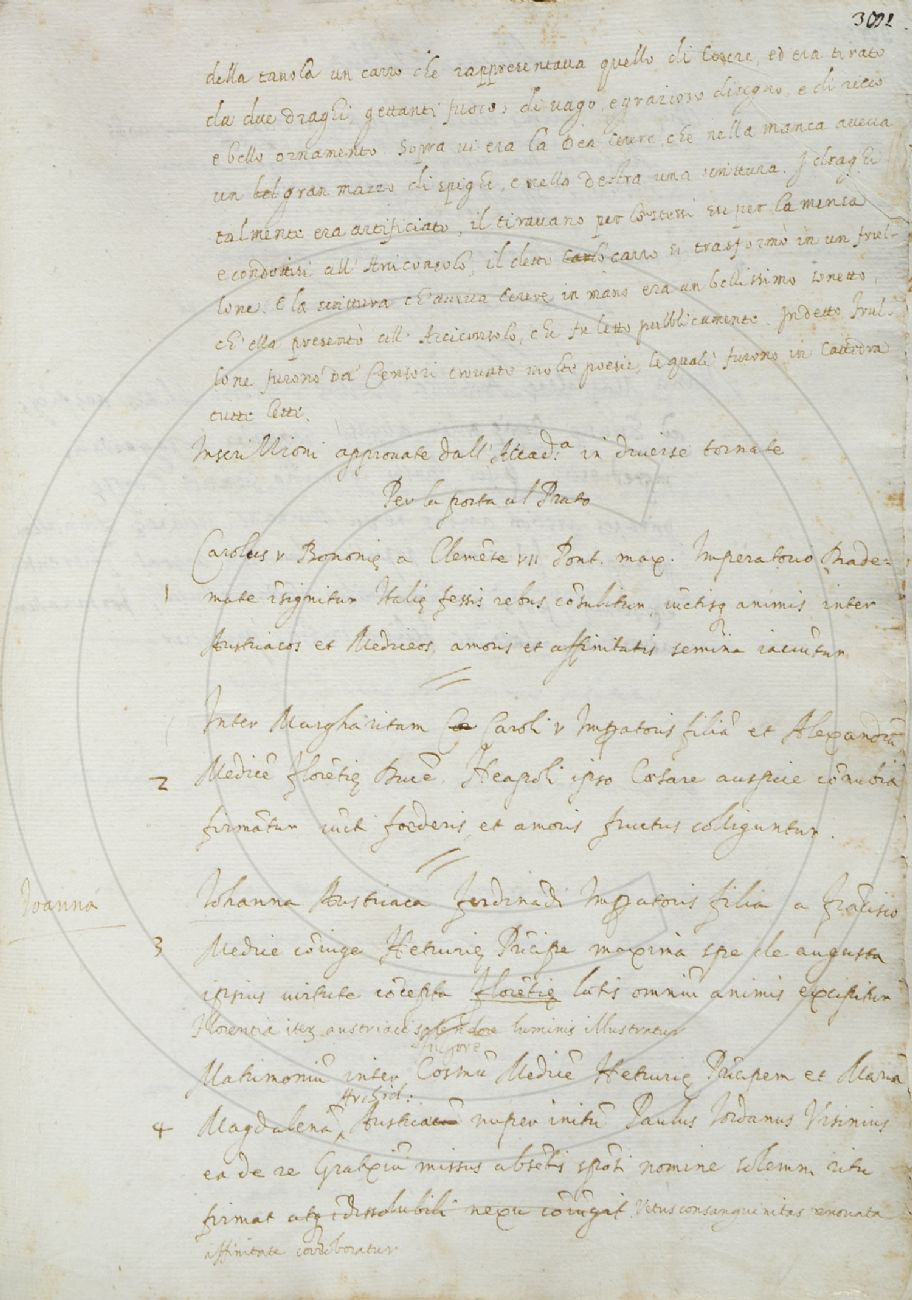 302
della tauola un carro che rappresentaua quello di Cerere, ed era tirato
da due draghi, gettanti fuoco, di uago, e grazioso disegno, e di ricco
e bello ornamento. Sopra ui era la Dea Cerere, che nella manca aueua
un bel gran mazzo di spighe, e nella destra una scrittura. I draghi
talmente era artificiato, il tirauano per lo stessi su per la mensa
e condottisi all' Arciconsolo, il detto carro si trasformò in un frul-
lone. E la scrittura ch' aueua Cerere in mano era un bellissimo sonetto,
ch' ella presentò all' Arciconsolo, che fu letto pubblicamente. In detto Frul-
lone furono da' Censori trouate molte poesie, le quali furono in Cattedra
tutte lette.
Inscrizzioni approuate dall' Accad.a in diuerse tornate
Per la porta al Prato
Carolus v Bononię a Clemẽte VII Pont. max. Imperatorio Diade-
1 mate ĩsignitur Italię fessis rebus cõsulitur, iũctisq animis inter
Austriacos et Mediceos, amoris et affinitatis semina iaciũtur
Inter Margharitam Caroli v Impatoris filiã et Alexandrũ
2 Medicẽ Florẽtię Ducẽ, Neapoli ipso Cæsare auspice cõnubia
firmãtur iũcti foederis, et amoris fructus colliguntur.
Ioanna
Iohanna Austriaca Ferdinãdi Impatoris filia a Frãcisco
3 Medice cõiuge Hetrurię Prĩcipe maxima spe de augusta
ipsius uirtute cõcepta Florẽtię lętis omniũ animis excipitur
Florentia itez austriaco splendore luminis illustratur
fulgore
Matrimoniũ inter Cosmũ Medicẽ Hetrurię Prĩcipem et Mariã
Archid:
4 Magdalenã Austriacã nuper initũ Paulus Iordanus Vrsinius
ea de re Gratziũ missus absẽtis spõsi nomine solemni ritu
firmat atq ĩdissolubili nexu cõiũgit Vetus consanguinitas renouata
affinitate corroboratur